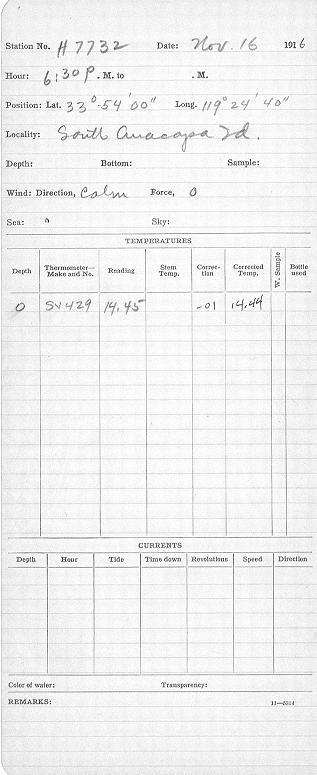 Station No. H 7732 Date: Nov. 16 1916
Hour: 6:30 P. M. to . M.
Position: Lat. 33°-54'00" Long. 119°24'40"
Locality: South Anacapa Id.
Depth: Bottom: Sample:
Wind: Direction, Calm Force, 0
Sea: 0 Sky:
TEMPERATURES
Depth Thermometer—Make and No. Reading Stem Temp. Correc-tion Corrected Temp. W. Sample Bottle used
0 SV429 14.45 -01 14.44
CURRENTS
Depth Hour Tide Time down Revolutions Speed Direction
Color of water: Transparency:
REMARKS: 11—5014